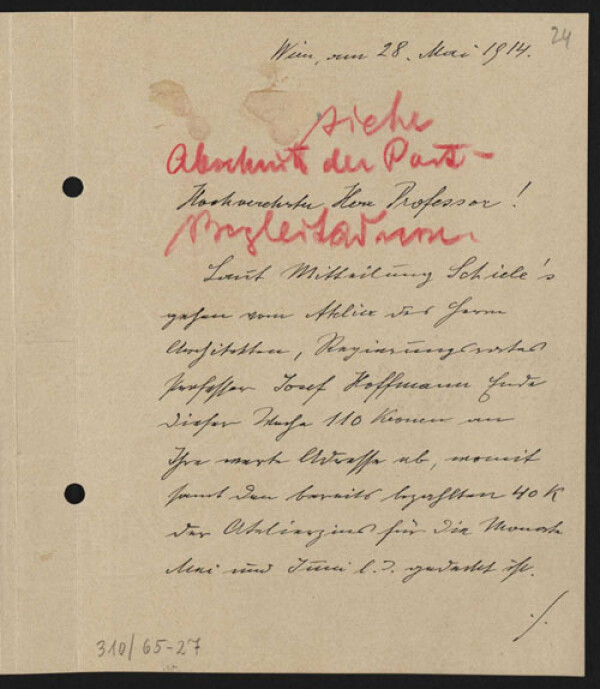 24
Wien, am 28. Mai 1914.
siehe
Abschnitt der Post-
Hochverehrter Herr Professor!
Begleitadresse.
Laut Mitteilung Schiele's
gehen vom Atelier des Herrn
Architekten, Regierungsrates
Professor Josef Hoffmann Ende
dieser Woche 110 Kronen an
Ihre werte Adresse ab, womit
samt den bereits bezahlten 40 K
der Atelierzins für die Monate
Mai und Juni l. J. gedeckt ist.
./.
310/65-27